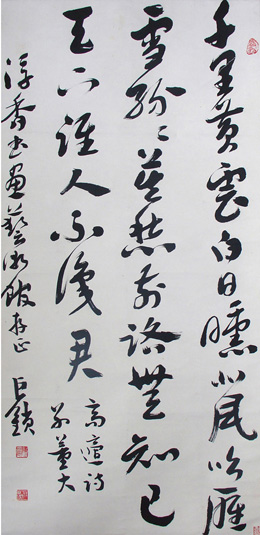 千里黄雲白日曛北風吹雁
雪紛〻莫愁前路無知己
天下誰人不識君
高適詩
别董大
淳香书畫藝術館存正
巨鎖